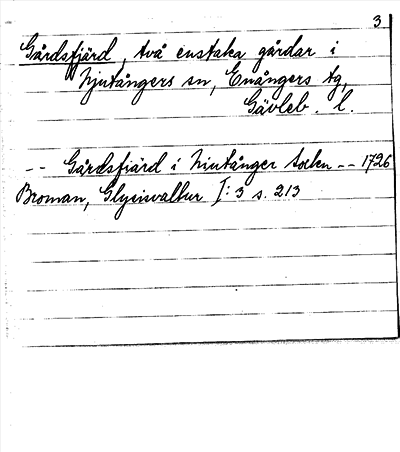 3
Gårdsfjärd, två enstaka gårdar i
Njutångers sn, Enångers tg,
Gävleb. l.
-- Gårdsfiärd i Niutånger socken -- 1726
Broman, Glysisvallur I: 3 s. 213